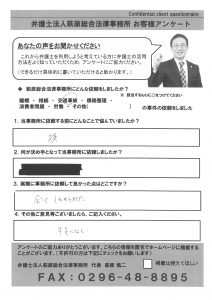 Confidential client questionnaire
弁護士法人萩原総合法律事務所 お客様アンケート
あなたの声をお聞かせください
これから弁護士を利用しようと考えている方に弁護士の活用
方法をよく知っていただくため、アンケートにご協力ください。
(できるだけ具体的に書いていただけると助かります。)
◆ 萩原総合法律事務所にどんな依頼をしましたか?
離婚・相続・交通事故・債務整理・
消費者問題・労働・その他( )の事件の依頼をしました
1. 当事務所に依頼する前にどんなことで悩んでいましたか?
2. 何が決め手となって当事務所に依頼しましたか?
3. 実際に事務所に依頼して良かった点はどこですか?
4. その他ご意見等ございましたら、ご記入ください。
アンケートのご協力ありがとうございます。こちらの情報を匿名でホームページに掲載する
ことがございます。(不許可の方は下記にチェックをお願いします)
弁護士法人萩原総合法律事務所 代表 萩原 慎二
掲載は控えてほしい
FAX:0296-48-8895